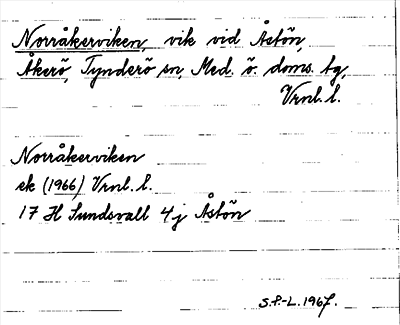 Norråkerviken, vik vid Åstön,
Åkerö, Tynderö sn, Med. ö. doms. tg,
Vrnl. l.
Norråkerviken
ek (1966) Vrnl. l.
17 H Sundsvall 4j Åstön
S.P.-L. 1967.